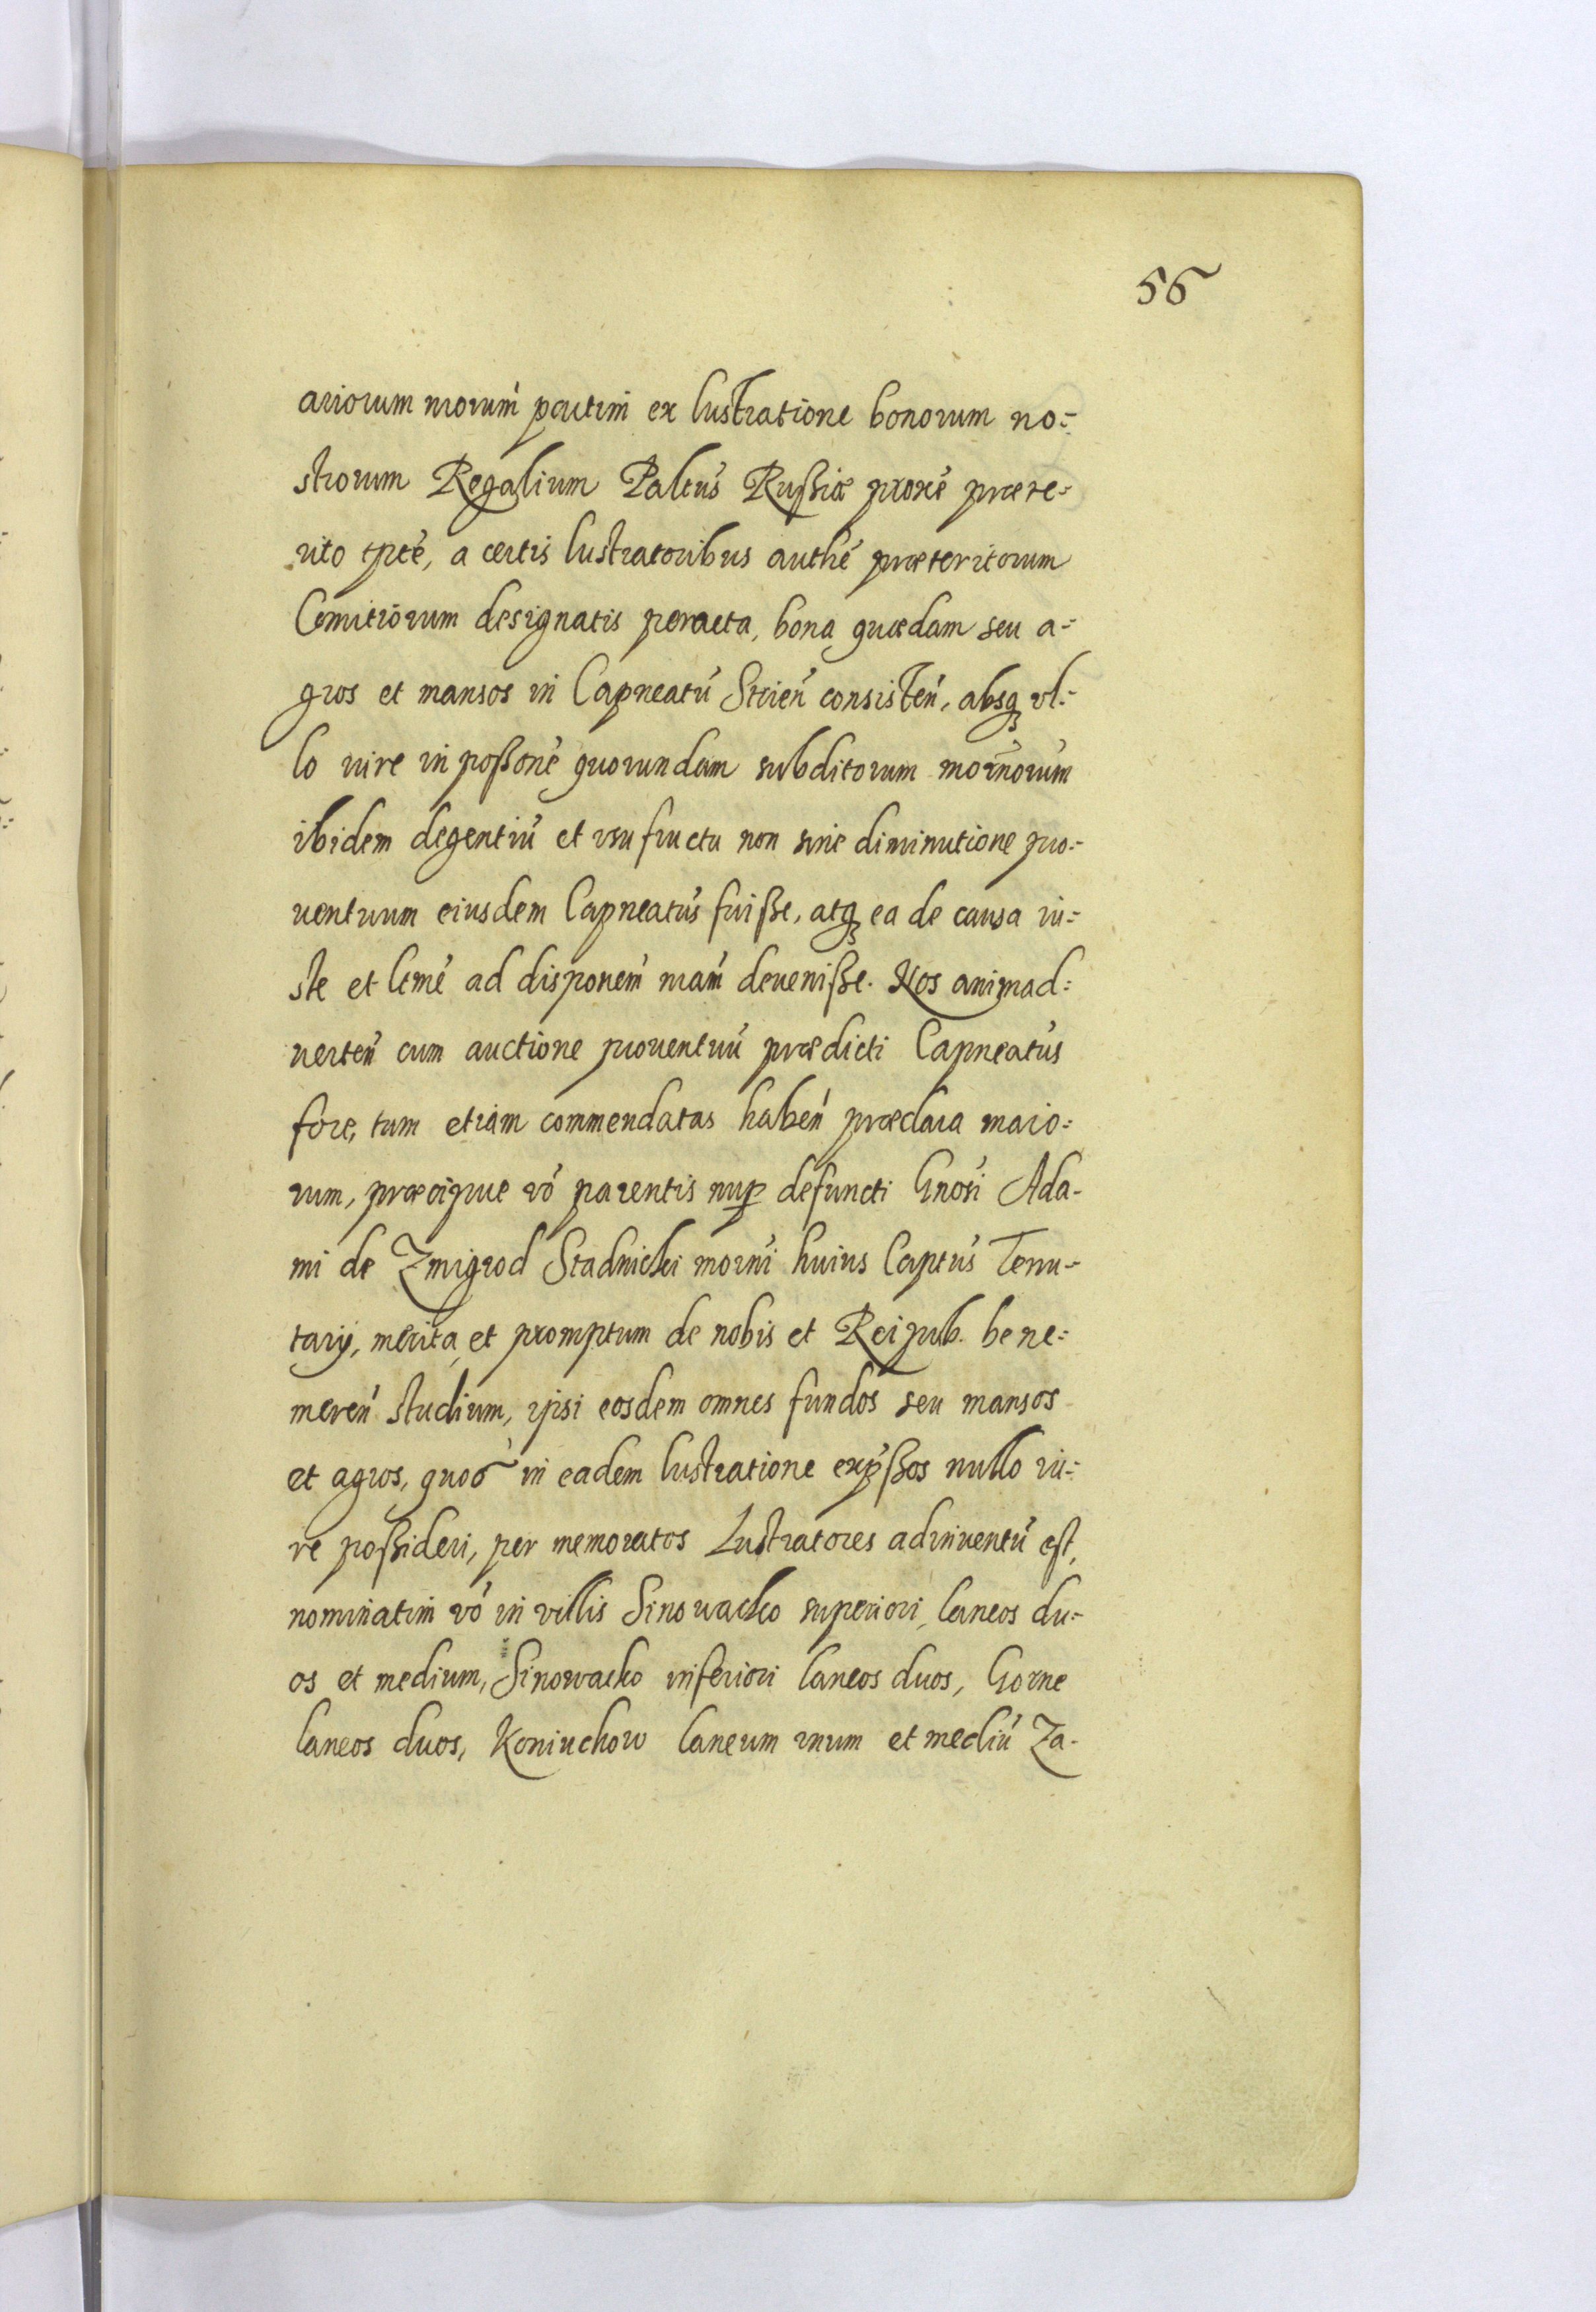 56
ariorum nrorum partim ex lustratione bonorum no=
strorum Regalium Paltus Russiæ proxe præte=
rito tpre, a certis lustratoribus authe præteritorum
Comitiorum designatis peracta, bona quædam seu a=
gros et mansos in Capneatu Strien consisten, absq vl=
lo iure in possone quorundam subditorum nrorum
ibidem degentiu et vsufructu non sine diminutione pro=
uentuum eiusdem Capneatus fuisse, atq ea de causa iu=
ste et ltme ad disponem nram deuenisse. Nos animad=
uerten cum auctione prouentuu prædicti Capneatus
fore, tum etiam commendatas haben præclara maio=
rum, præcipue vo parentis nup defuncti Gnosi Ada-
mi de Zmigrod Stadnicki huius Captus Tenu-
tarij, merita et promptum de nobis et Reipub. bene=
meren studium, ipsi eosdem omnes fundos seu mansos
et agros, quos in eadem lustratione expssos nullo iu=
re possideri, per memoratos Lustratores adinuentu est,
nominatim vo in villis Sinowacko superiori, laneos du=
os et medium, Sinowacko inferiori laneos duos, Gorne
laneos duos, Koniuchow laneum vnum et mediu Za-